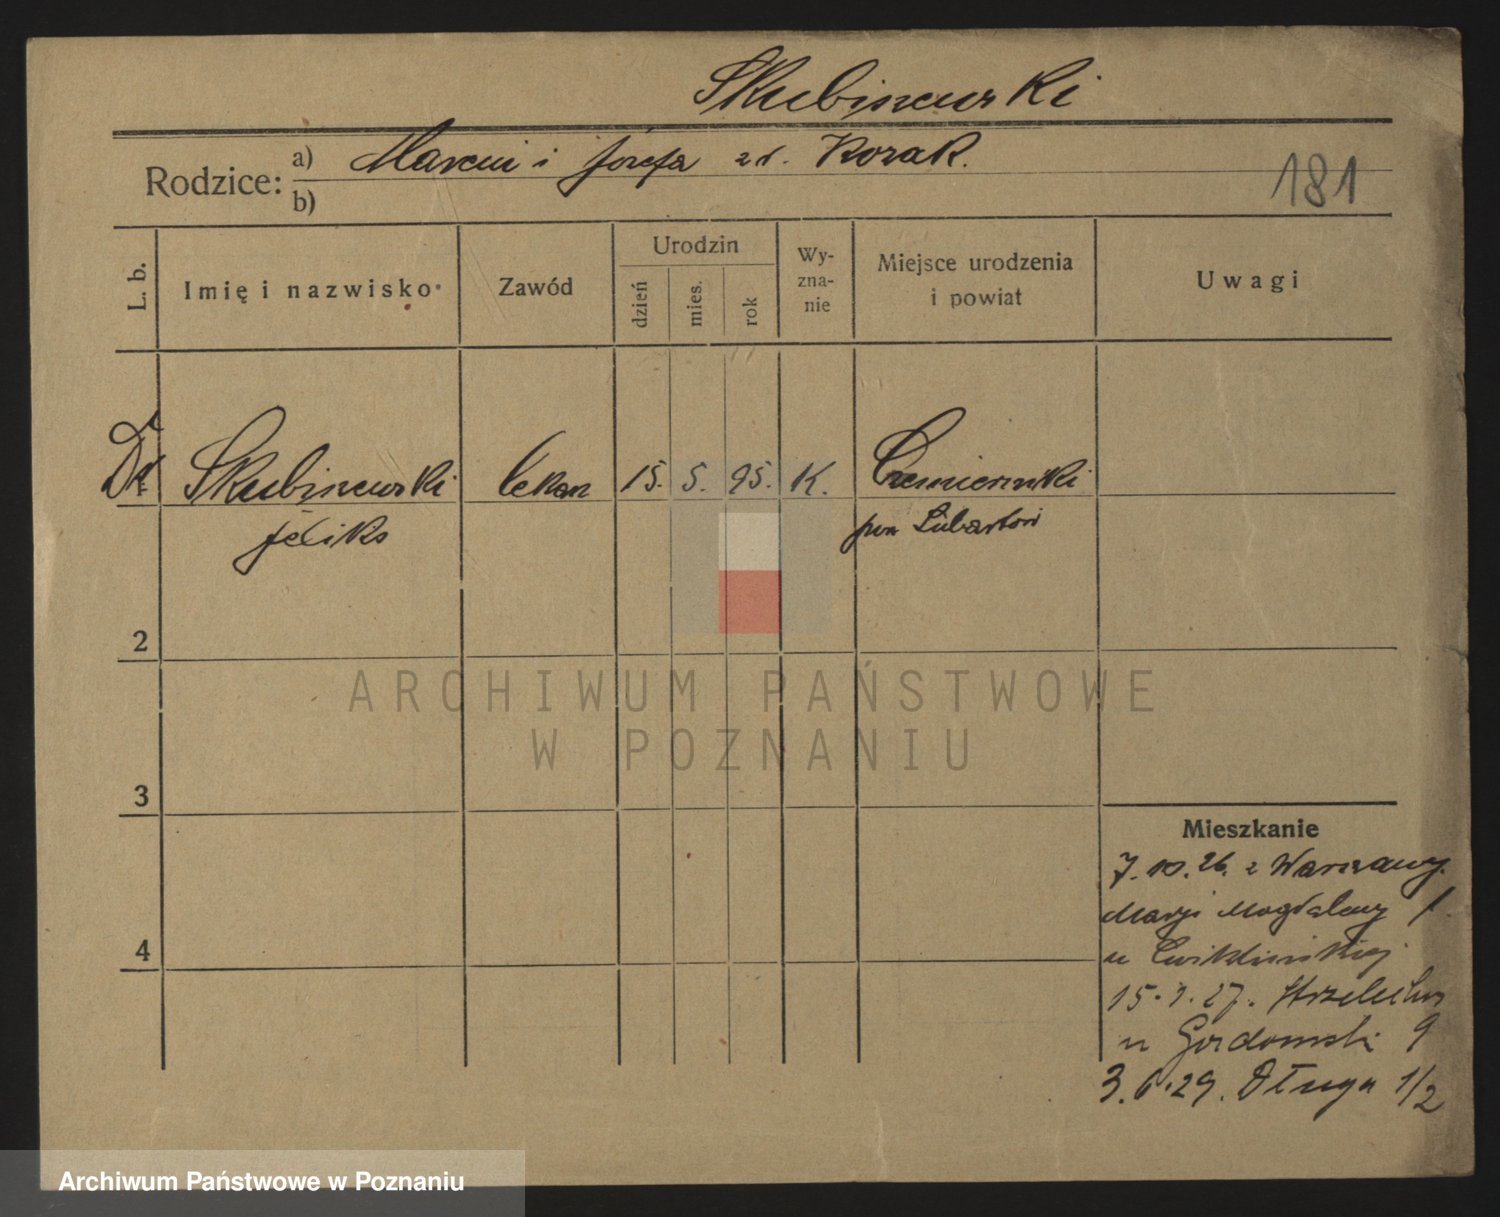 Skubiszewski
Rodzice: a) Marcin i Józefa z d. Kozak.
b)
181
L. b.
Imię i nazwisko
Zawód
Urodzin
dzień
mies.
rok
Wy-
zna-
nie
Miejsce urodzenia
i powiat
Uwagi
Dr Skubiszewski lekarz 15. 5. 95. K. Czemierniki
Feliks pow Lubartów
2
ARCHIWUM PAŃSTWOWE
W POZNANIU
3
Mieszkanie
7.10.26. z Warszawy.
Marji Magdaleny 1
4
u Ćwiklińskiej
15.1.27. Strzelecka
u Gordomski 9
3.6.29. Długa 1/2
Archiwum Państwowe w Poznaniu